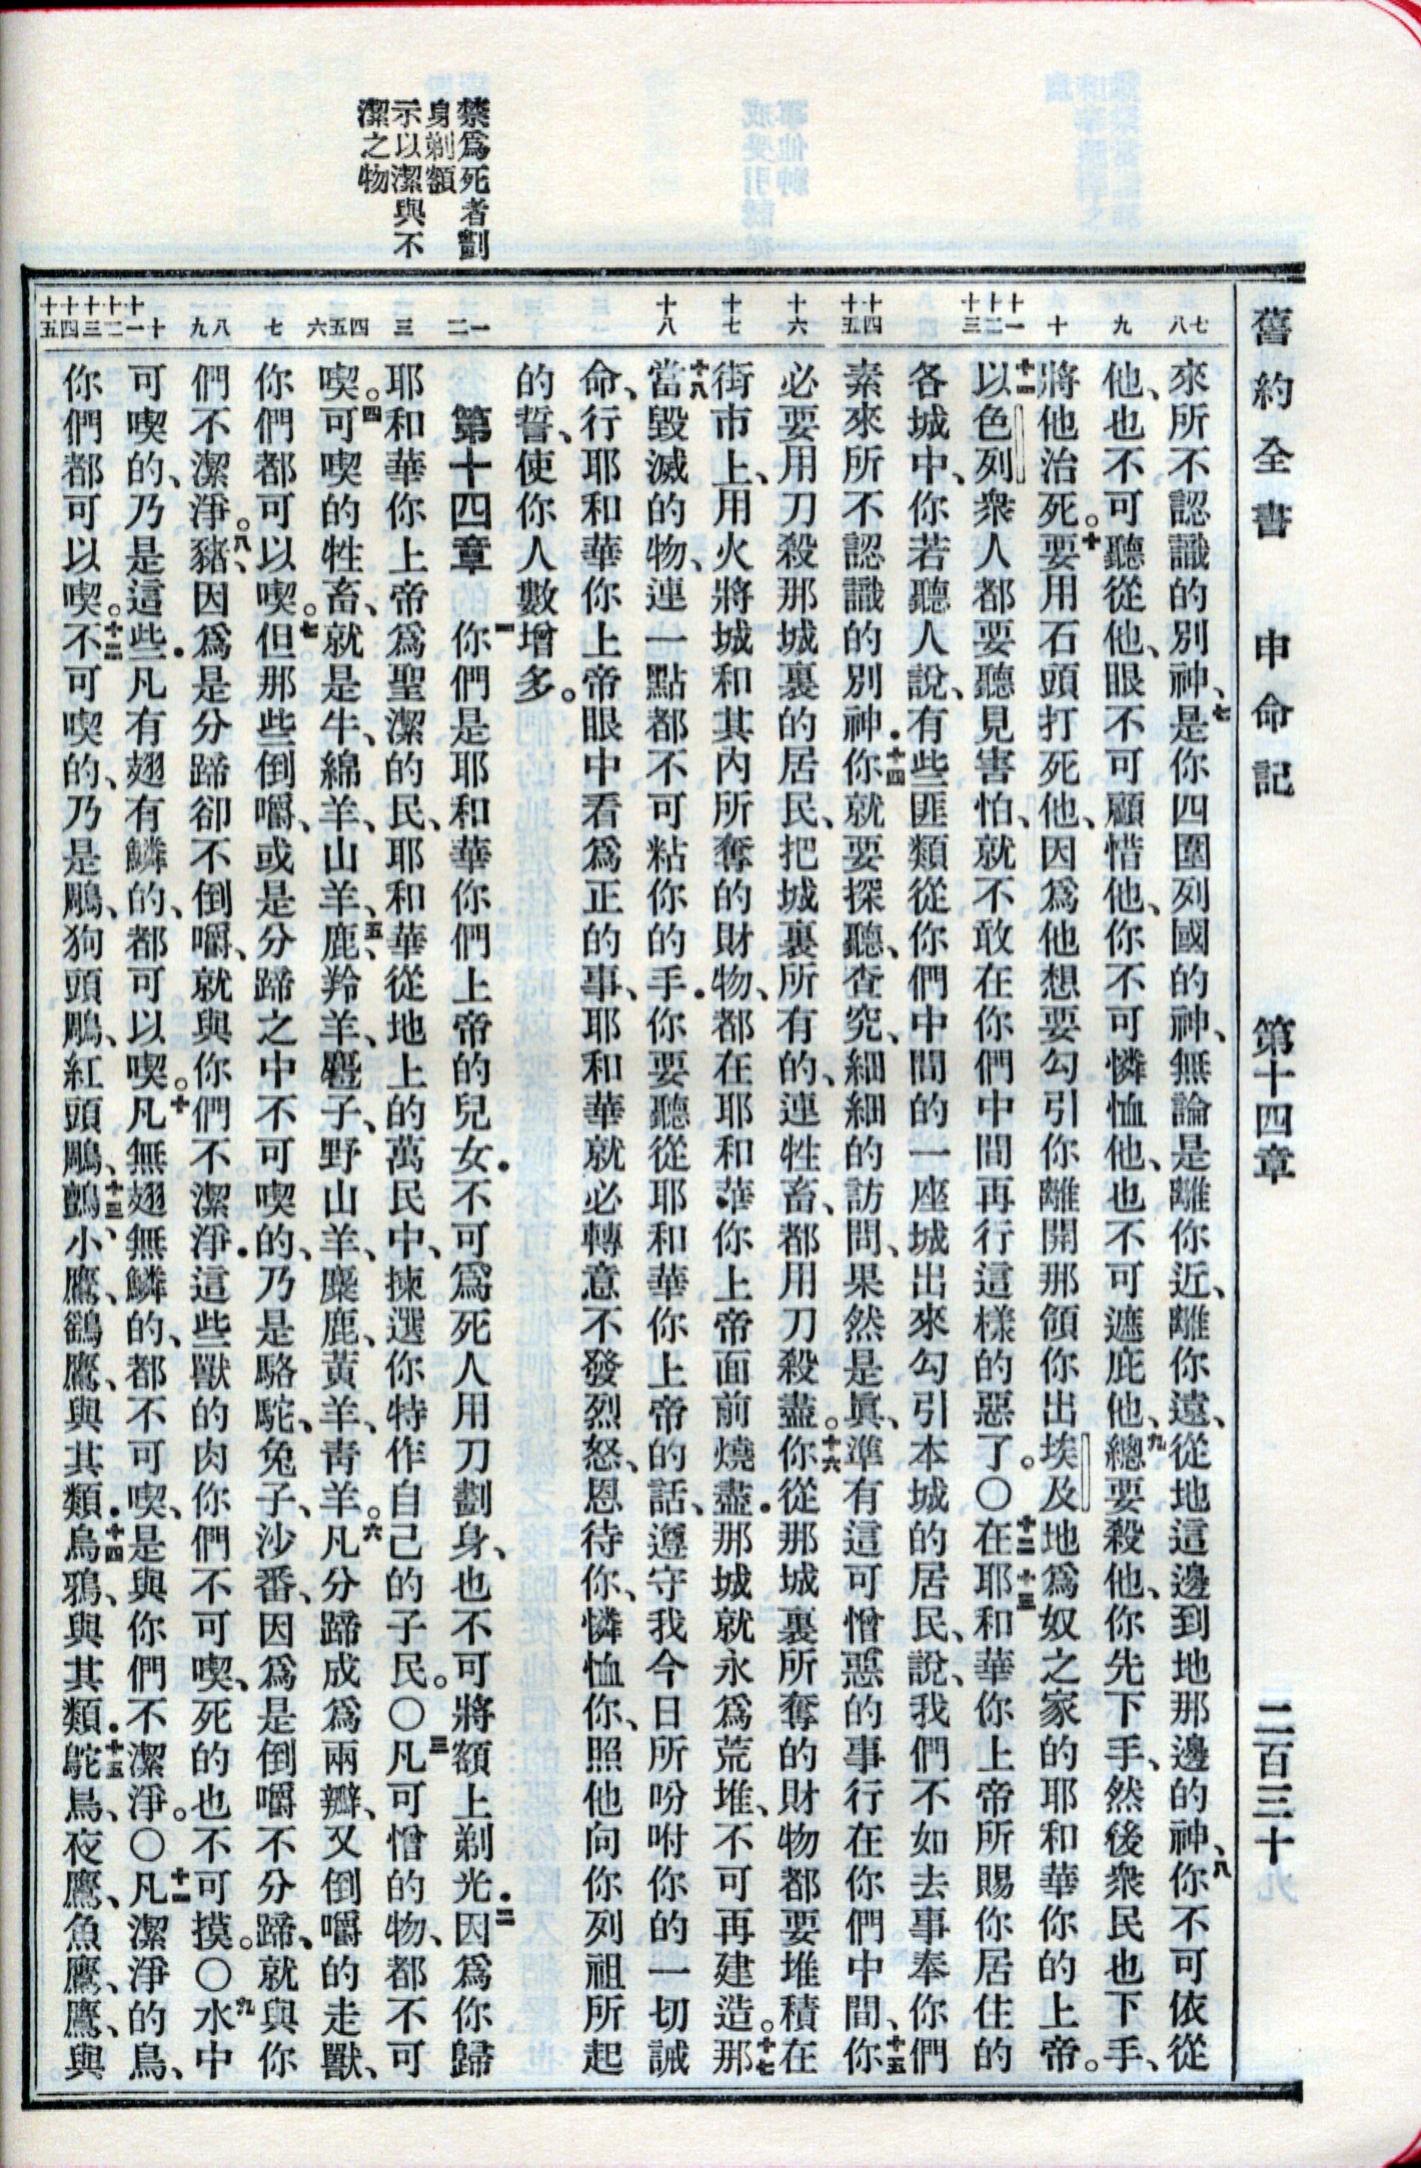 舊約全書 申命記 第十四章 二百三十
禁爲死者劃
身剃額
示以潔與不
潔之物
七 八
九
十
十一 十二 十三
十四 十五
十六
十七
十八
一 二
三
四 五 六
七
八 九
十 十一 十二 十三 十四 十五
來所不認識的別神、七是你四圍列國的神、無論是離你近、離你遠、從地這邊到地那邊的神、八你不可依從
他、也不可聽從他、眼不可顧惜他、你不可憐恤他、也不可遮庇他、九總要殺他、你先下手、然後衆民也下手、
將他治死。十要用石頭打死他、因爲他想要勾引你離開那領你出埃及地爲奴之家的耶和華你的上帝。
十一以色列衆人都要聽見害怕、就不敢在你們中間再行這樣的惡了。〇十二在十三耶和華你上帝所賜你居住的
各城中、你若聽人說、有些匪類從你們中間的一座城出來勾引本城的居民、說、我們不如去事奉你們
素來所不認識的別神．十四你就要探聽、查究、細細的訪問、果然是眞、準有這可憎惡的事行在你們中間、十五你
必要用刀殺那城裏的居民、把城裏所有的、連牲畜、都用刀殺盡。十六你從那城裏所奪的財物都要堆積在
街市上、用火將城和其內所奪的財物、都在耶和華你上帝面前燒盡．那城就永爲荒堆、不可再建造。十七那
當毀滅的物、連一點都不可粘你的手．十八你要聽從耶和華你上帝的話、遵守我今日所吩咐你的一切誡
命、行耶和華你上帝眼中看爲正的事、耶和華就必轉意不發烈怒、恩待你、憐恤你、照他向你列祖所起
的誓、使你人數增多。
第十四章 一你們是耶和華你們上帝的兒女．不可爲死人用刀劃身、也不可將額上剃光．二因爲你歸
耶和華你上帝爲聖潔的民、耶和華從地上的萬民中、揀選你特作自己的子民。〇三凡可憎的物、都不可
喫。四可喫的牲畜、就是牛、綿羊、山羊、五鹿、羚羊、麅子、野山羊、麋鹿、黃羊、青羊。六凡分蹄成爲兩瓣、又倒嚼的走獸、
你們都可以喫。七但那些倒嚼、或是分蹄之中不可喫的、乃是駱駝、兔子、沙番、因爲是倒嚼不分蹄、就與你
們不潔淨。八豬、因爲是分蹄卻不倒嚼、就與你們不潔淨．這些獸的肉你們不可喫、死的也不可摸。〇九水中
可喫的、乃是這些．凡有翅有鱗的、都可以喫。十凡無翅無鱗的、都不可喫、是與你們不潔淨。〇十一凡潔淨的鳥、
你們都可以喫。十二不可喫的、乃是鵰、狗頭鵰、紅頭鵰、十三鸇、小鷹、鷂鷹、與其類．十四烏鴉、與其類．十五鴕鳥、夜鷹、魚鷹、鷹、與